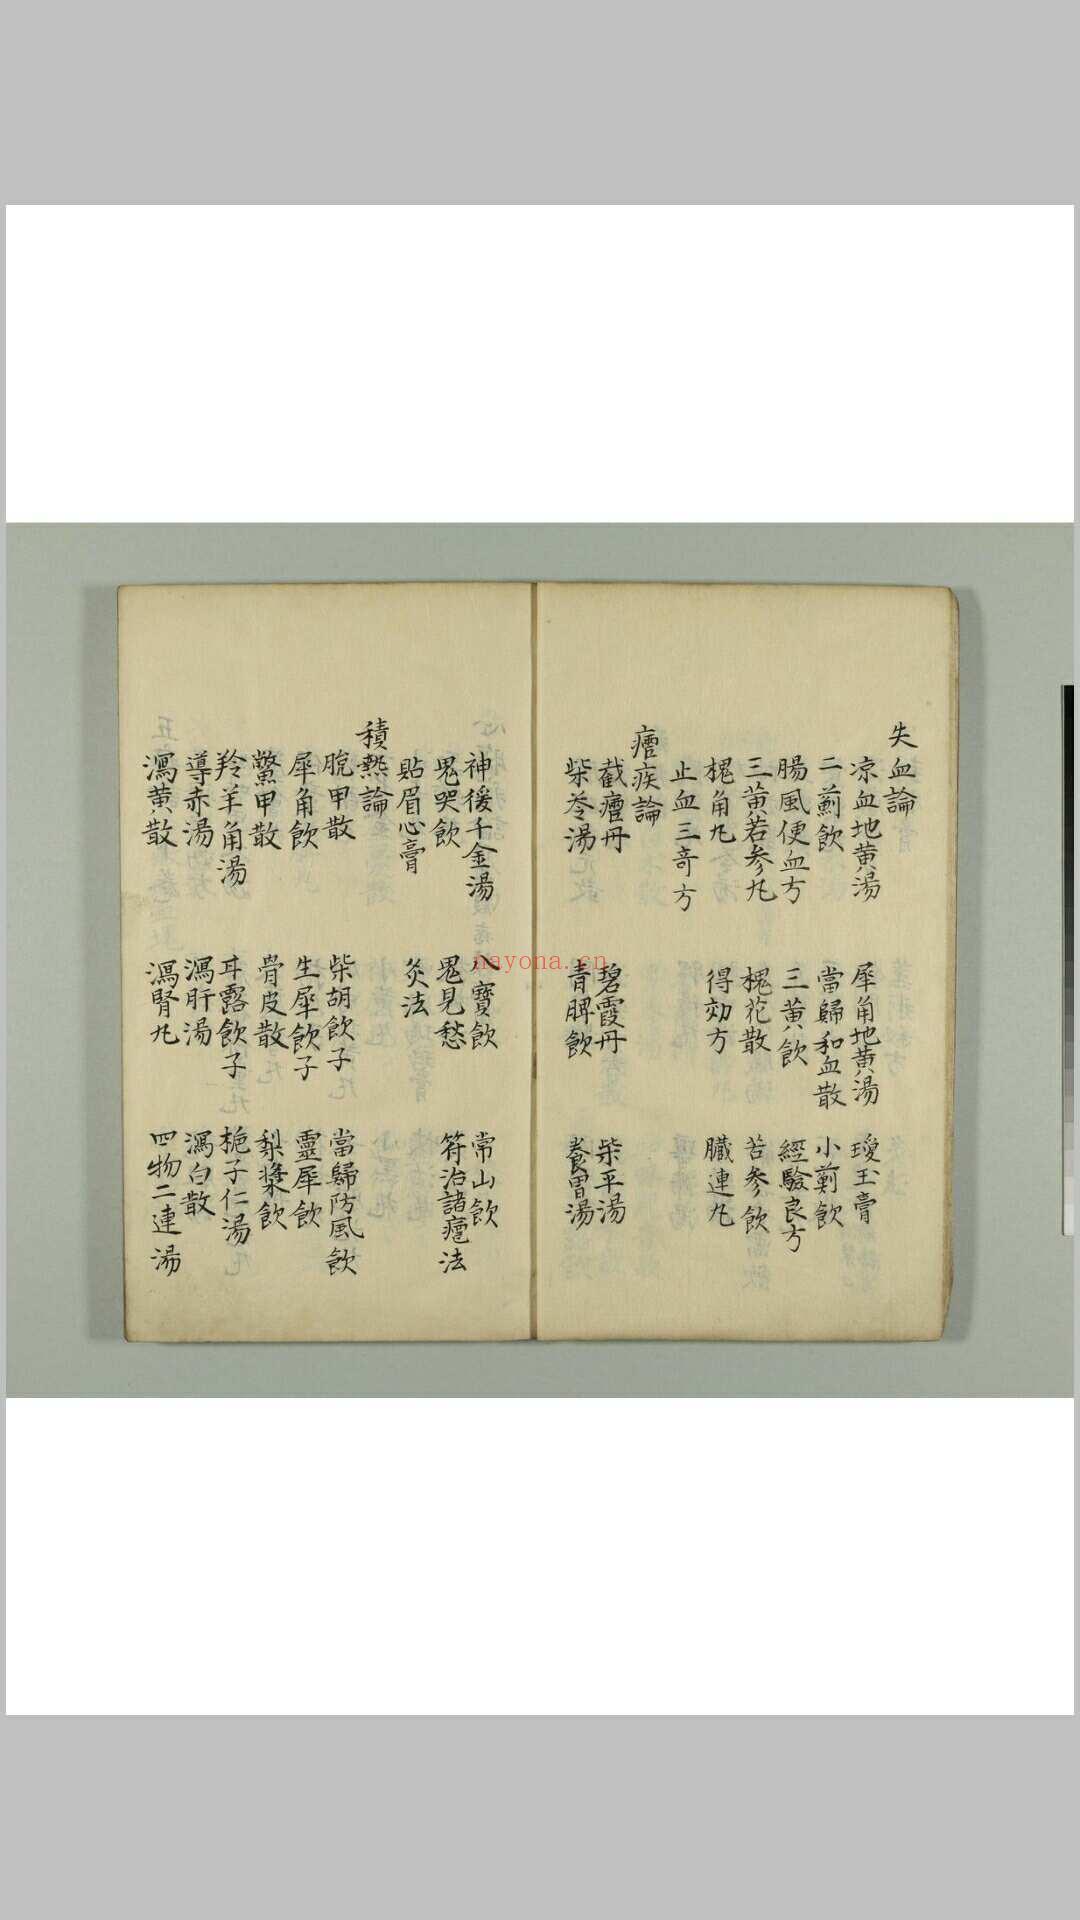 失血論
凉血地黄湯 犀角地黄湯 瓊玉膏
二薊飲 當歸和血散 小薊飲
腸風便血方 三黄飲 經驗良方
三黄苦參丸 槐花散 苦參飲
槐角丸 得効方 臟連丸
止血三奇方
瘧疾論
截瘧丹 碧霞丹 柴平湯
柴苓湯 青脾飲 養胃湯
神後千金湯 八寶飲 常山飲
鬼哭飲 鬼見愁 符治諸瘧法
貼眉心膏 灸法
積熱論
脫甲散 柴胡飲子 當歸防風飲
犀角飲 生犀飲子 靈犀飲
鱉甲散 骨皮散 梨漿飲
羚羊角湯 耳露飲子 梔子仁湯
導赤湯 瀉肝湯 瀉白散
瀉黄散 瀉腎丸 四物二連湯
nayona.cn